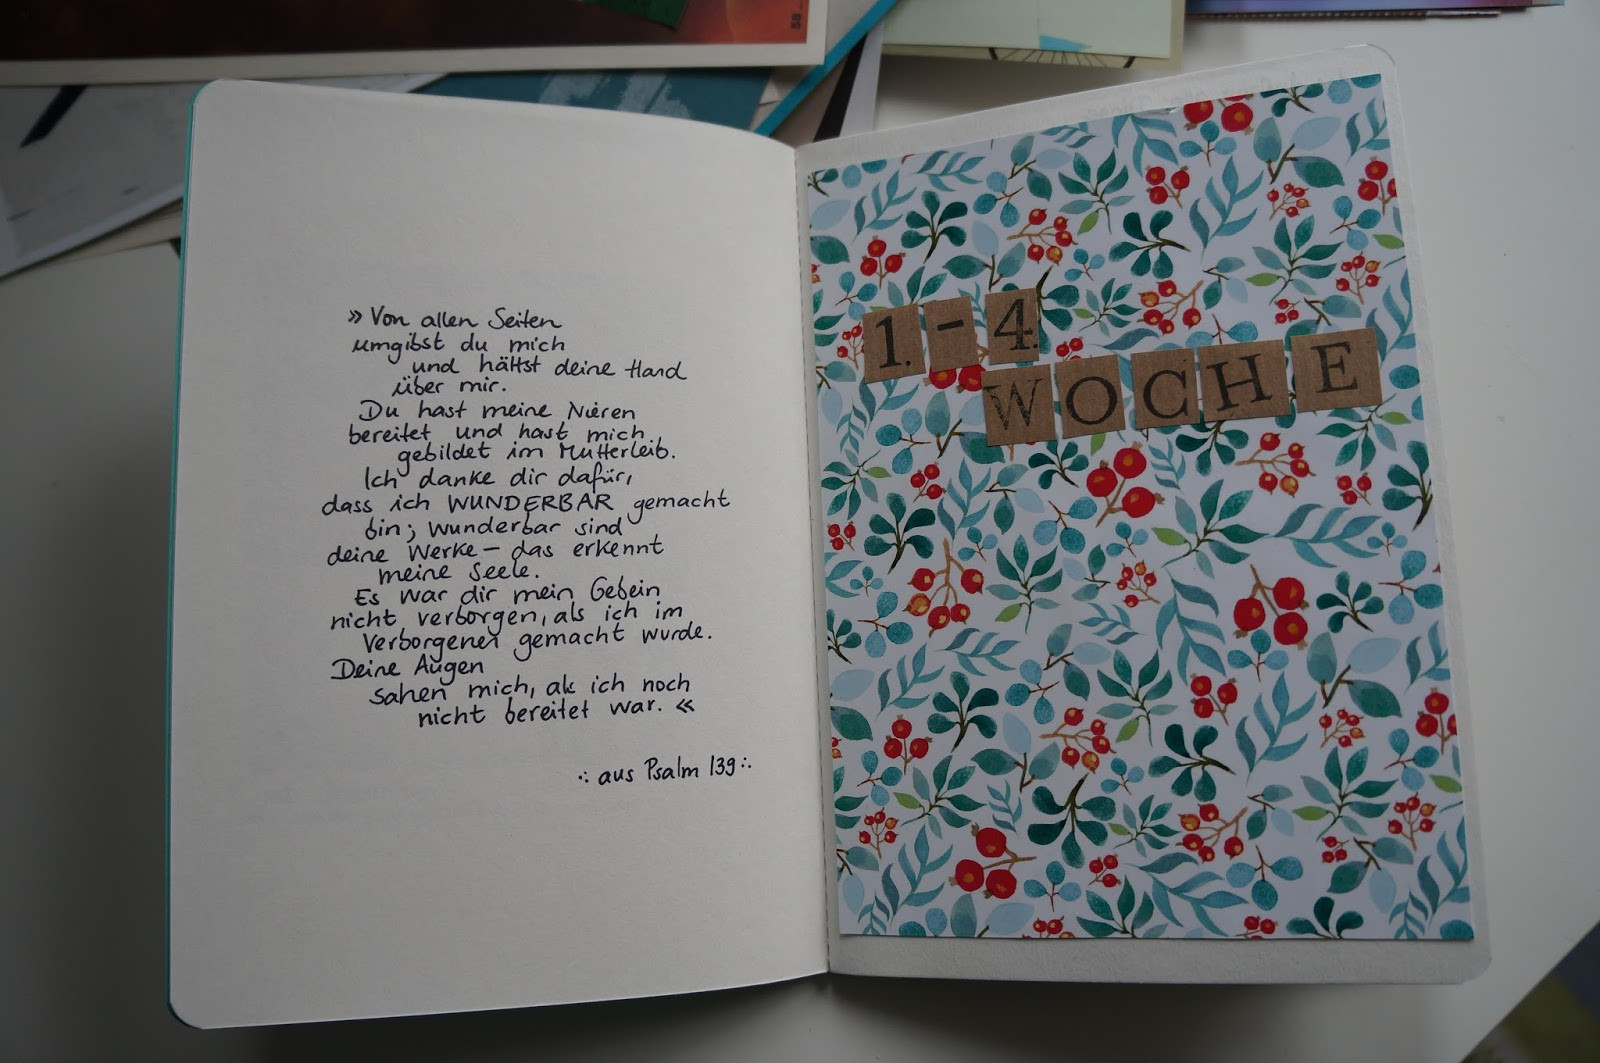 » Von allen Seiten
umgibst du mich
und hältst deine Hand
über mir.
Du hast meine Nieren
bereitet und hast mich
gebildet im Mutterleib.
Ich danke dir dafür,
dass ich WUNDERBAR gemacht
bin; wunderbar sind
deine Werke – das erkennt
meine Seele.
Es war dir mein Gebein
nicht verborgen, als ich im
Verborgenen gemacht wurde.
Deine Augen
sahen mich, als ich noch
nicht bereitet war. «
∴ aus Psalm 139 ∴
1. - 4.
WOCHE
58